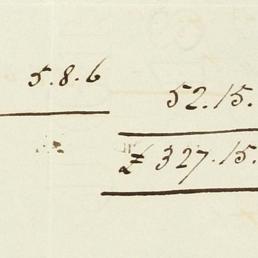 5.8.6
52.15.
£ 327.15.